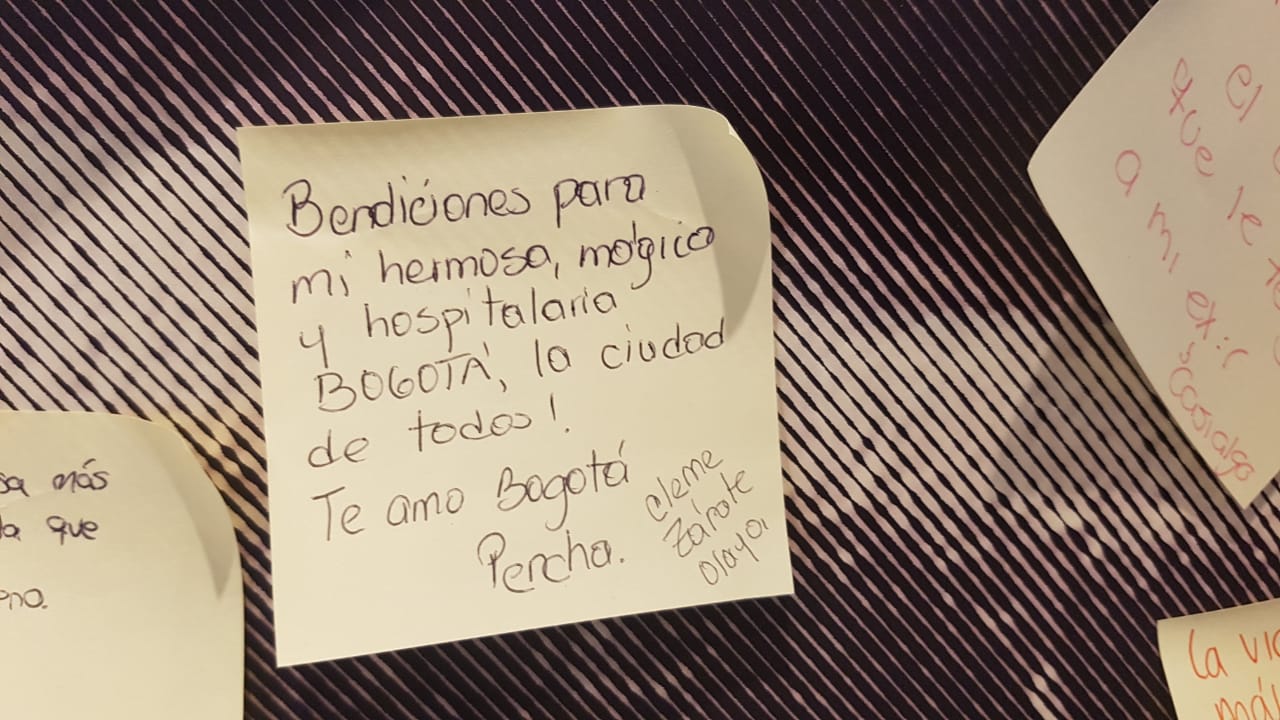 Bendiciones para
mi hermosa, mágica
y hospitalaria
BOGOTÁ, la ciudad
de todos!
Te amo Bogotá
Percha.
Cleme
Zárate
Olaya.
más
que
el
que le
a mi
La